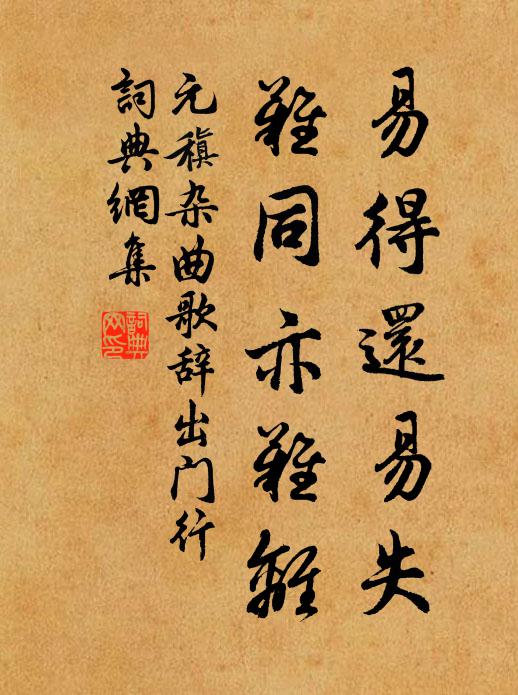 易得還易失
難同亦難離
元稹杂曲歌辞出门行
詞典網集
詞典网印